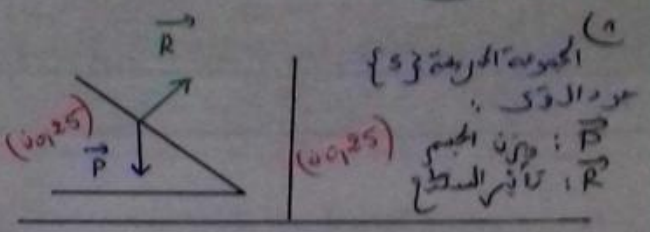 1)
المجموعة المدروسة {S}
جرد القوى :
P⃗ : وزن الجسم
R⃗ : تأثير السطح
(0,25ن)
R⃗
(0,25ن)
P⃗